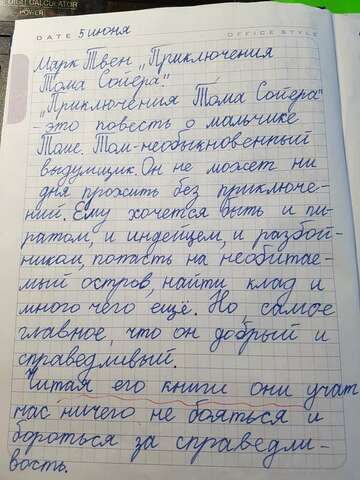 DIGIT CALCULATOR
POWER
DATE 5 июня
OFFICE STYLE
Марк Твен „Приключения
Тома Сойера".
„Приключения Тома Сойера"
- это повесть о мальчике
Томе. Том-необыкновенный
выдумщик. Он не может ни
дня прожить без приключе-
ний. Ему хочется быть и пи-
ратом, и индейцем, и разбой-
ником, попасть на необитае-
мый остров, найти клад и
много чего ещё. Но, самое
главное, что он добрый и
справедливый.
Читая его книги они учат
нас ничего не бояться и
бороться за справедли-
вость.